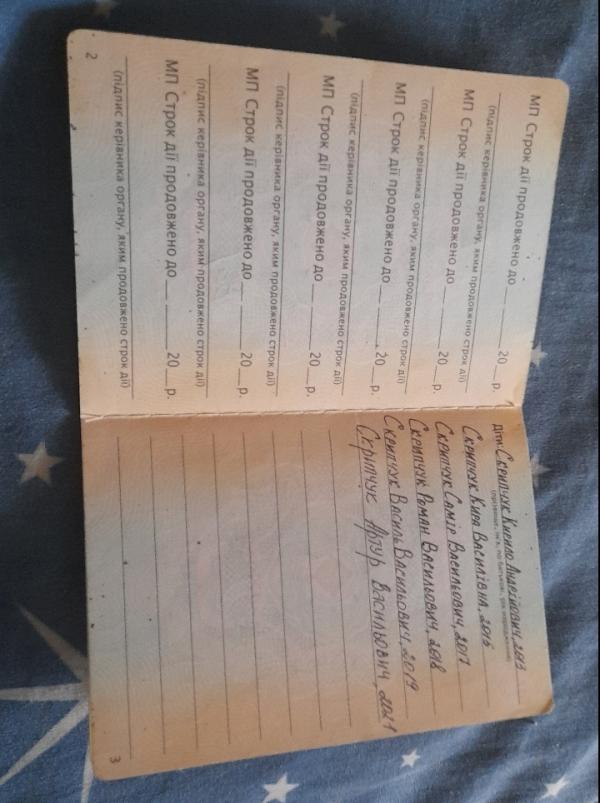 МП Строк дії продовжено до ___ ______ 20__р.
(підпис керівника органу, яким продовжено строк дії)
МП Строк дії продовжено до ___ ______ 20__р.
(підпис керівника органу, яким продовжено строк дії)
МП Строк дії продовжено до ___ ______ 20__р.
(підпис керівника органу, яким продовжено строк дії)
МП Строк дії продовжено до ___ ______ 20__р.
(підпис керівника органу, яким продовжено строк дії)
МП Строк дії продовжено до ___ ______ 20__р.
(підпис керівника органу, яким продовжено строк дії)
МП Строк дії продовжено до ___ ______ 20__р.
(підпис керівника органу, яким продовжено строк дії)
2
Діти: Скрипчук Кирило Андрійович, 2013
(прізвище, ім'я, по батькові, рік народження)
Скрипчук Кира Василівна, 2015
Скрипчук Самір Васильович, 2017
Скрипчук Роман Васильович, 2018
Скрипчук Василь Васильович, 2019
Скрипчук Артур Васильович, 2021
3